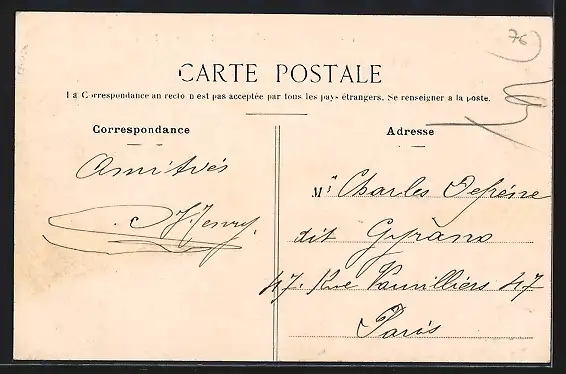 76
CARTE POSTALE
La Correspondance au recto n'est pas acceptée par tous les pays étrangers. Se renseigner à la poste.
Correspondance
Adresse
Amitiés
Henry
Mr Charles
dit Gyrano
47. Rue Vauvilliers 47
Paris